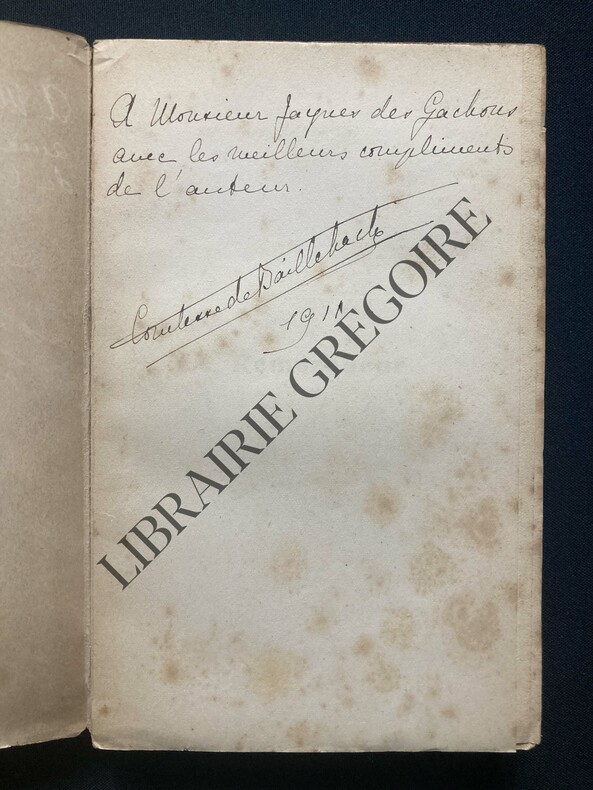 A Monsieur Jacques des Gachons
avec les meilleurs compliments
de l'auteur.
Comtesse de Baillehache
1911
LIBRAIRIE GRÉGOIRE